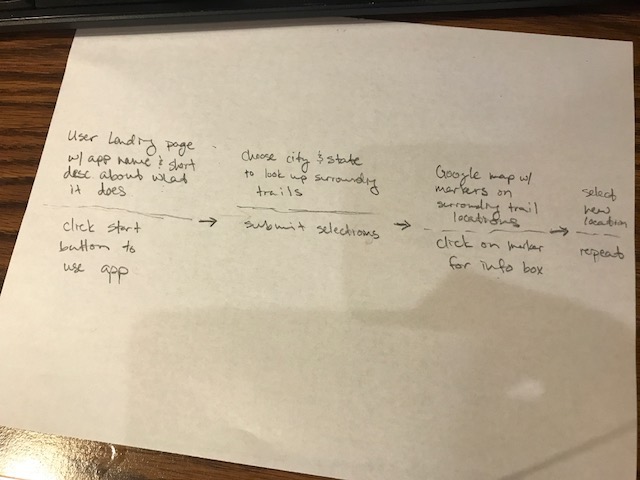 User landing page
w/ app name & short
desc about what
it does
click start
button to
use app
→
choose city & state
to look up surrounding
trails
submit selections
→
Google map w/
markers on
surrounding trail
locations
click on marker
for info box
→
select
new
location
repeat